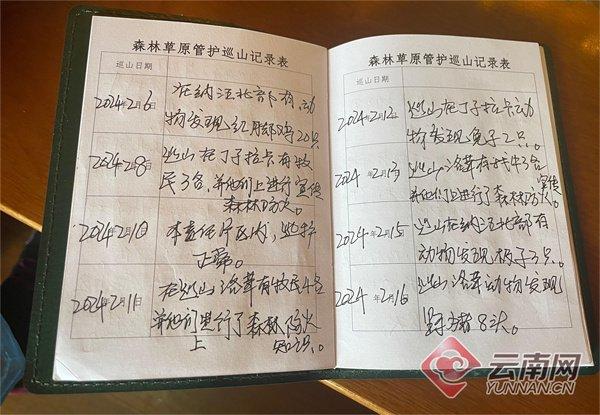 森林草原管护巡山记录表
巡山日期
2024年2月6日
在纳汪北部有动
物发现红脚鸡20只
2024年2月8日
巡山在丁子拉卡有牧
民3名,并他们上进行宣传
森林防火。
2024年2月10日
本责任片区内,巡护
正常。
2024年2月11日
在巡山洛茸有牧民4名
并他们进行了森林防火
上 知识。
森林草原管护巡山记录表
巡山日期
2024年2月12日
巡山在丁子拉卡动
物发现兔子2只。
2024年2月13日
巡山洛茸有牧牛3名
并他们上进行了森林防火宣传。
2024年2月15日
巡山在纳汪北部有
动物发现 子3只。
2024年2月16日
巡山洛茸动物发现
野猪8头。
云南网
YUNNAN.CN